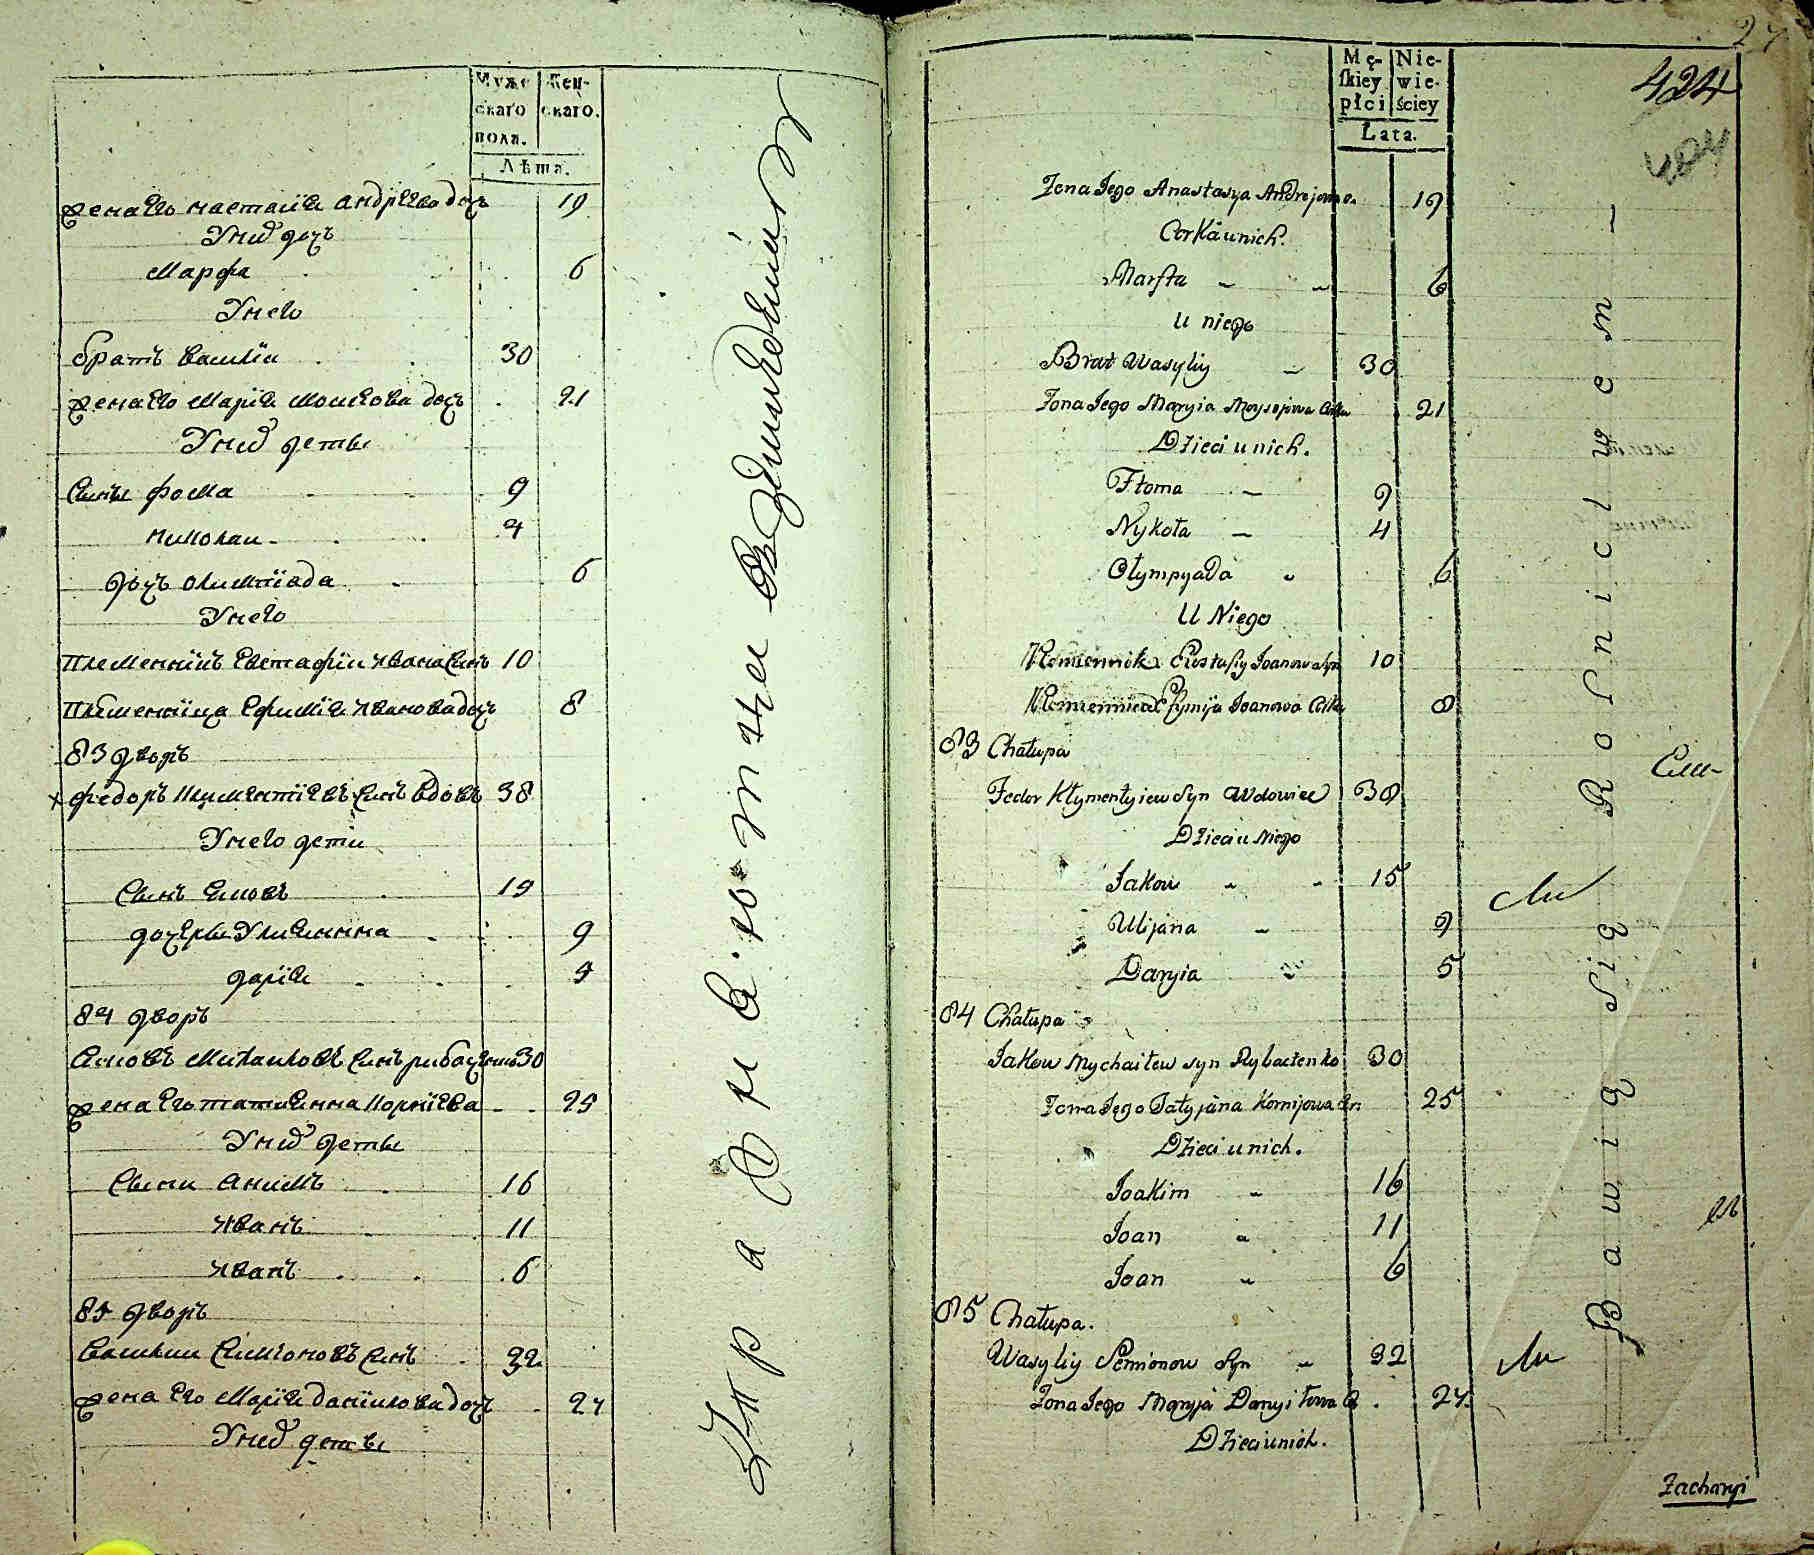 Муже
скаго
пола.
Жен-
скаго.
Лѣта.
жена его настасия андрѣева доч 19
У них доч
Марфа 6
У него
братъ василии 30
жена его Мария Моисеова дочъ 21
У них дети
Сыны фома 9
николаи 4
дочъ олимпиада 6
У него
племенникъ Евстафии ивана Синъ 10
племенница Ефимия иванова дочъ 8
83 дворъ
федоръ климентиевъ Синъ вдовъ 38
У него дети
Синъ яковъ 15
дочеры Улиянна 9
дария 5
84 дворъ
яковъ Михаиловъ Синъ рибаченко 30
жена его татиянна корниева 25
У них дети
Сыни якимъ 16
иванъ 11
иванъ 6
85 дворъ
василии Симеоновъ Синъ 32
жена его Мария данилова доч 27
У них дети
27
Mę-
skiey
płci
Nie-
wie-
ściey
Łata.
424
404
Żona Jego Anastasya Andrejowna 19
Corka u nich.
Marfta 6
U niego
Brat Wasyliy 30
Żona Jego Maryia Moysejowa Córka 21
Dzieci u nich.
Ftoma 9
Nykoła 4
Ołympyada 6
U Niego
Plemiennik Eustafiy Joanow Syn 10
Plemiennica Efymija Joanowa Córka 8
83 Chałupa
Fedor Kłymentyiew Syn Wdowiec 38
Dzieci u Niego
Jakow 15
Ulijana 9
Daryia 5
84 Chałupa
Jakow Mychaiłew syn Rybaczenko 30
Żona Jego Tatyjana Kornijowa 25
Dzieci u nich.
Joakim 16
Joan 11
Joan 6
85 Chałupa.
Wasyliy Semionow Syn 32
Żona Jego Maryja Danyiłowa C 27.
Dzieci u nich.
Bawią się Rolnictwem
Zacharyi